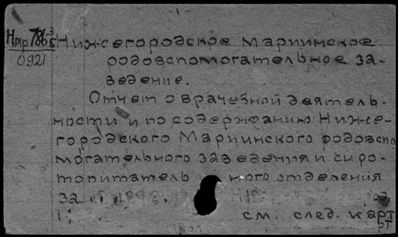 Нижегородское Мариинское
родовспомогательное за-
ведение.
Отчет о врачебной деятель-
ности и по содержанию Ниже-
городского Мариинского родовспо
могательного заведения и сиро-
топитатель ного отделения
за
см. след. карт
0921